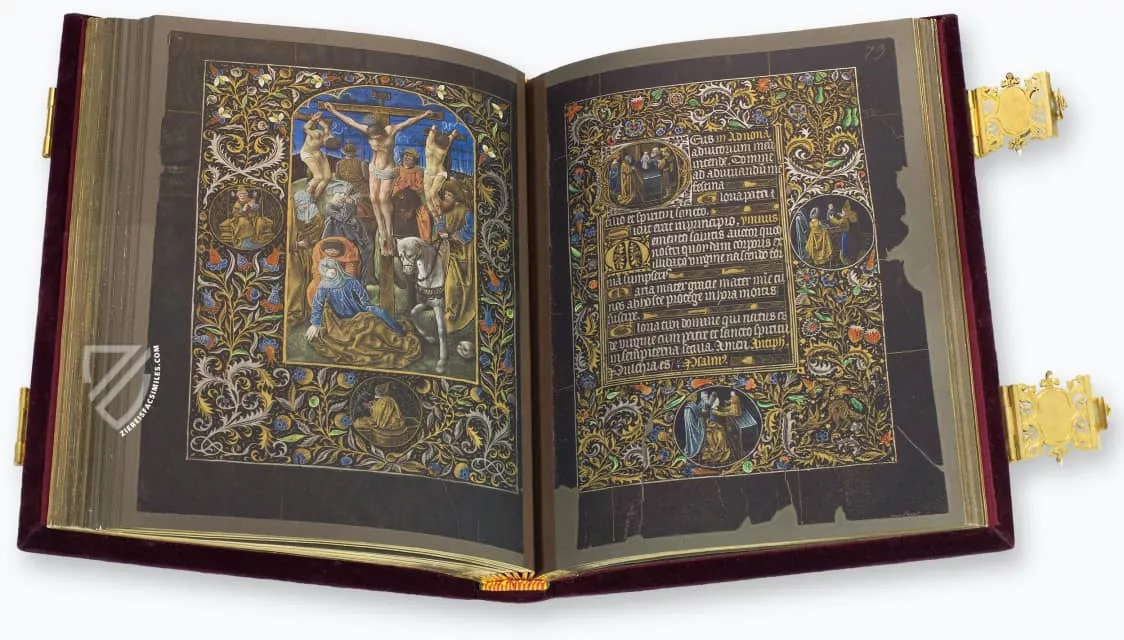 intende. Domine
ad adiuuandū me
festina.
loria patri
filio et spiritui sancto.
erat in principio. ymnus
emento salutis auctor quod
nostri quondam corporis ex
illibata virgine nascendo for
mā sumpseris
aria mater gratie mater
nos ab hoste protege in hora mortis
suscipe.
loria tibi domine qui natus es
de virgine cum patre et sancto spiritu
in sempiterna secula. Amen. Antiph.
Pulchra es. Psalmus
ZIEREISFACSIMILES.COM